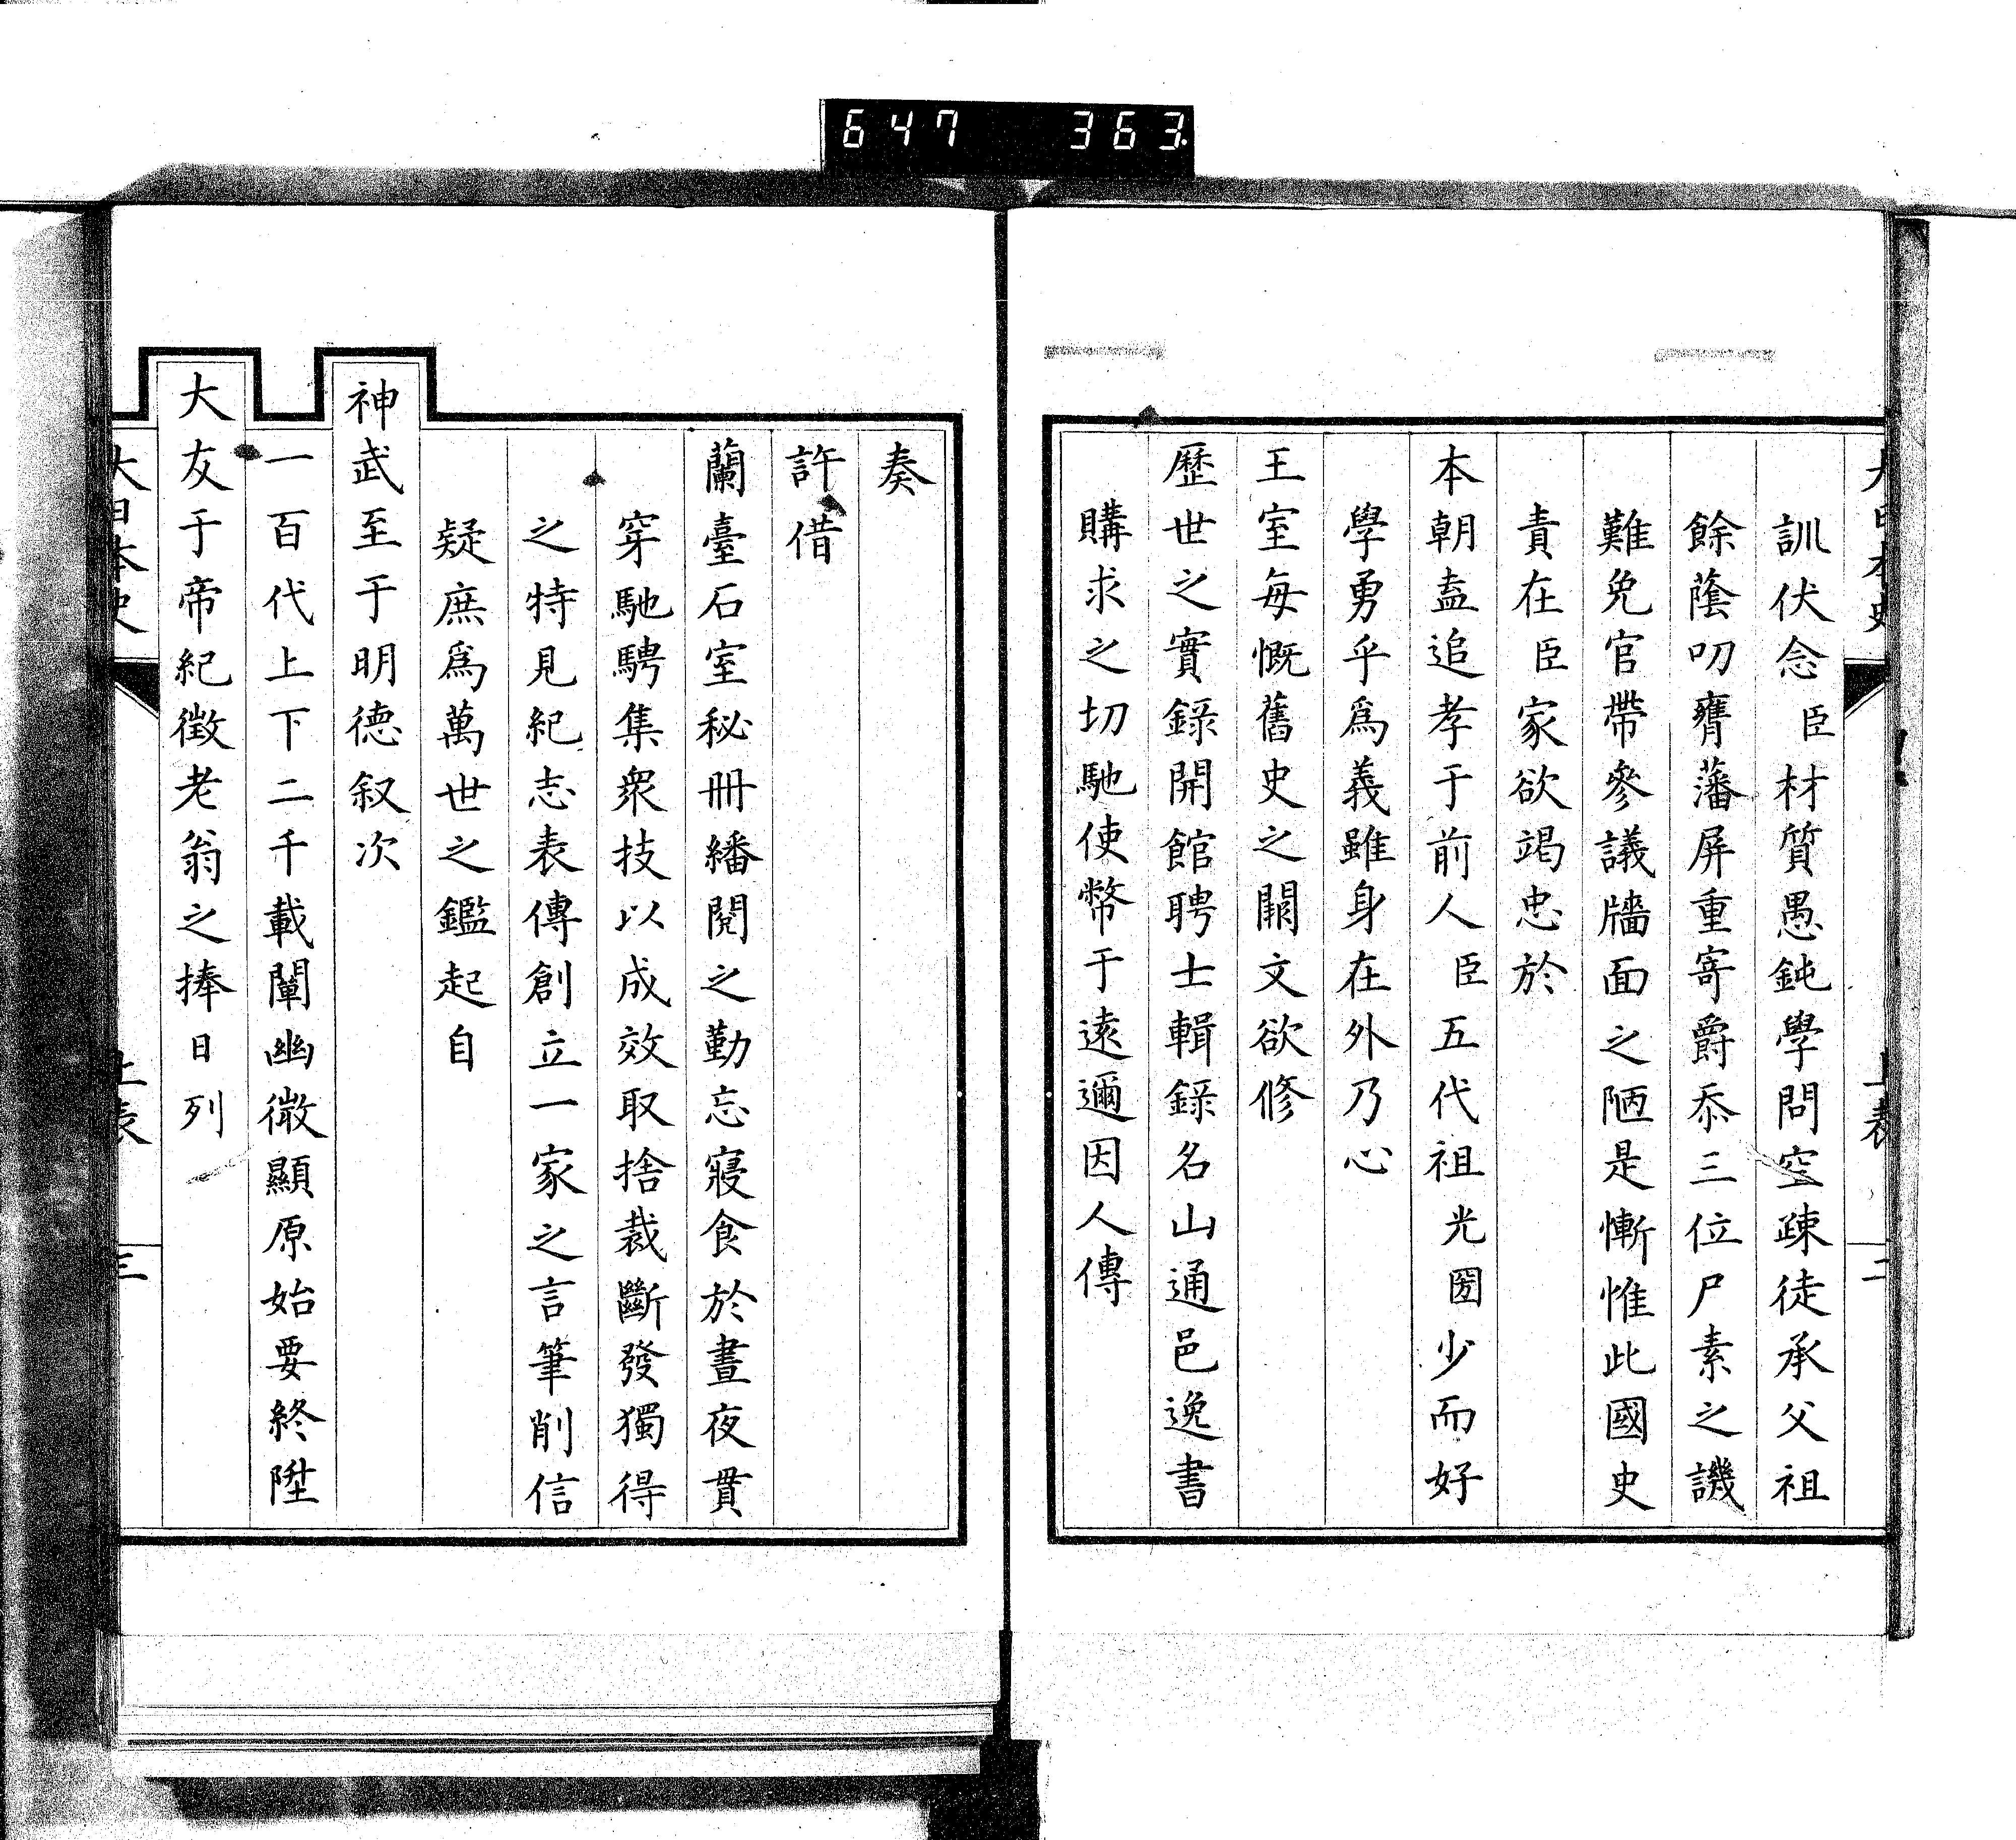 647 363
大日本史 上表 二
訓伏念臣材質愚鈍學問空疎徒承父祖
餘蔭叨膺藩屏重寄爵忝三位尸素之譏
難免官帶參議牆面之陋是慚惟此國史
責在臣家欲竭忠於
本朝盍追孝于前人臣五代祖光圀少而好
學勇乎爲義雖身在外乃心
王室每慨舊史之闕文欲修
歷世之實錄開館聘士輯錄名山通邑逸書
購求之切馳使幣于遠邇因人傳
奏
許借
蘭臺石室秘冊繙閱之勤忘寢食於晝夜貫
穿馳騁集衆技以成效取捨裁斷發獨得
之特見紀志表傳創立一家之言筆削信
疑庶爲萬世之鑑起自
神武至于明德叙次
一百代上下二千載闡幽微顯原始要終陞
大友于帝紀徵老翁之捧日列
大日本史 上表 三